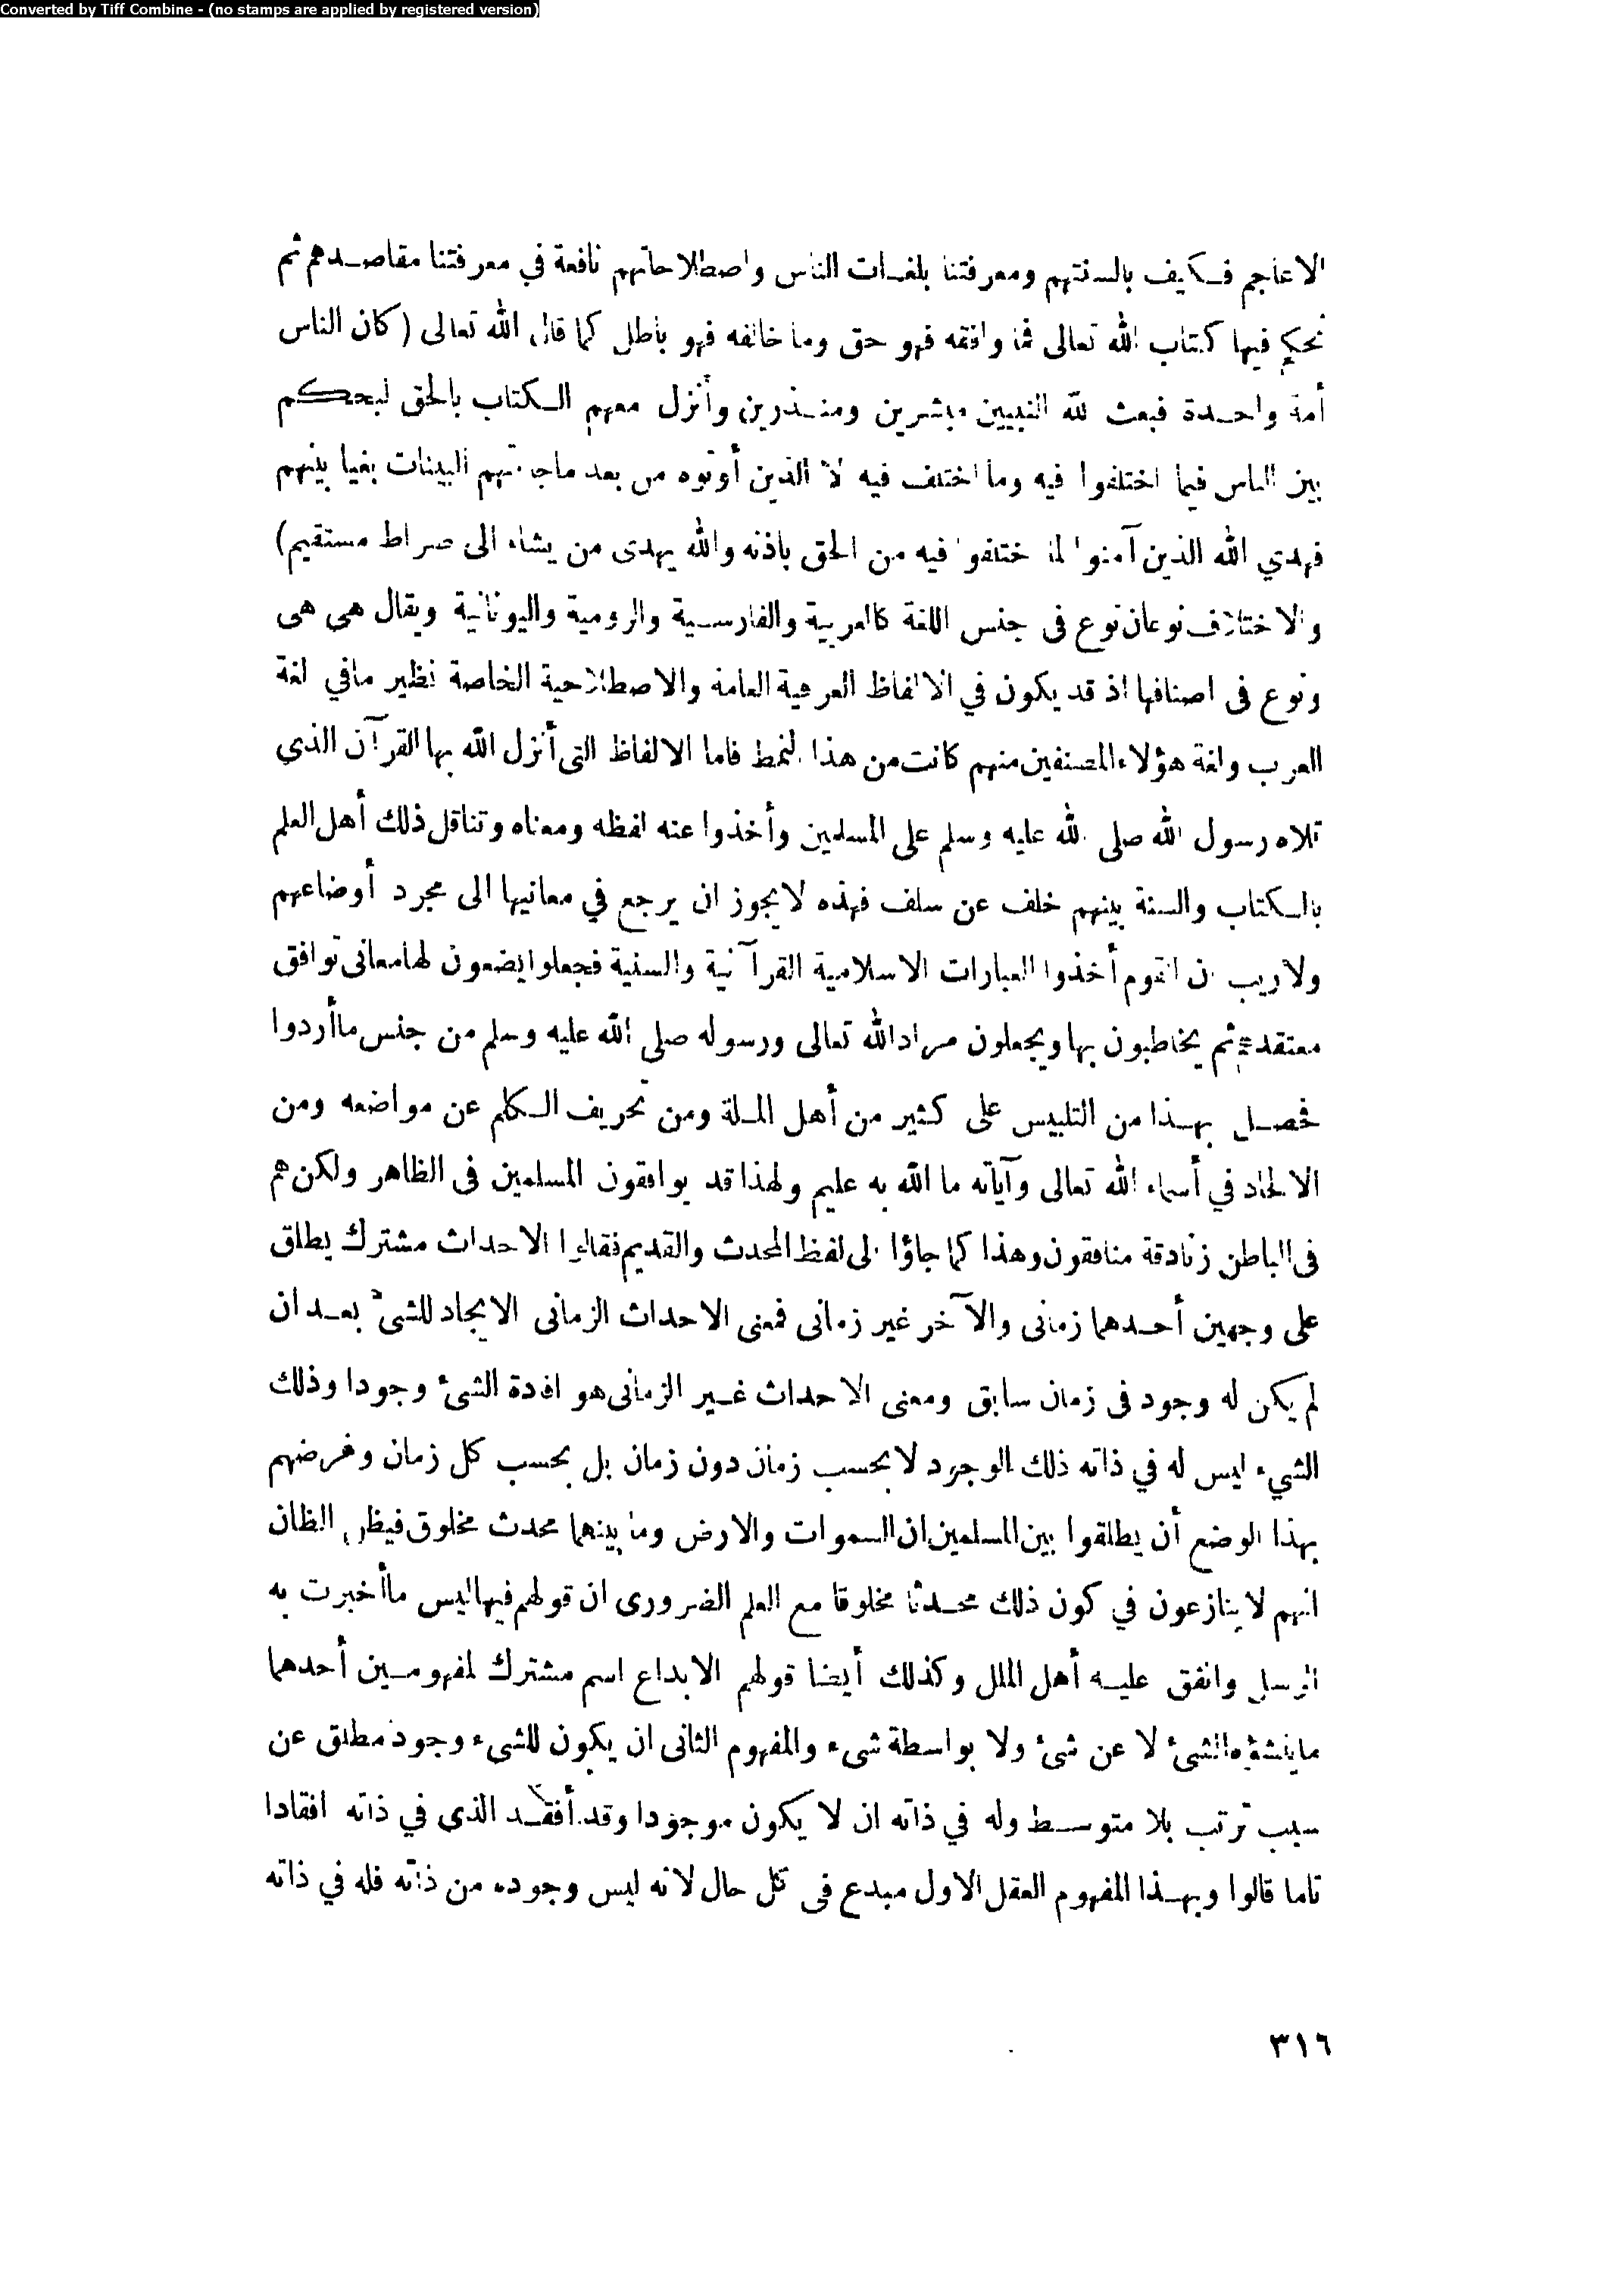 Converted by Tiff Combine - (no stamps are applied by registered version)
الاعاجم فكيف بالسنتهم ومعرفتنا بلغات الناس واصطلاحاتهم نافعة في معرفتنا مقاصدهم ثم
نحكم فيها كتاب الله تعالى فما وافقه فهو حق وما خالفه فهو باطل كما قال الله تعالى (كان الناس
أمة واحدة فبعث الله النبيين مبشرين ومنذرين وأنزل معهم الكتاب بالحق ليحكم
بين الناس فيما اختلفوا فيه وما اختلف فيه الا الذين أوتوه من بعد ماجاءتهم البينات بغيا بينهم
فهدي الله الذين آمنوا لما اختلفوا فيه من الحق باذنه والله يهدى من يشاء الى صراط مستقيم)
والاختلاف نوعان نوع فى جنس اللغة كالعربية والفارسية والرومية واليونانية ويقال هى هى
ونوع فى اصنافها اذ قد يكون في الالفاظ العرفية العامة والاصطلاحية الخاصة نظير مافي لغة
العرب ولغة هؤلاء المصنفين منهم كانت من هذا النمط فاما الالفاظ التى أنزل الله بها القرآن الذى
تلاه رسول الله صلى الله عليه وسلم على المسلمين وأخذوا عنه لفظه ومعناه وتناقل ذلك أهل العلم
بالكتاب والسنة بينهم خلف عن سلف فهذه لايجوز ان يرجع في معانيها الى مجرد أوضاعهم
ولاريب ان القوم أخذوا العبارات الاسلامية القرآنية والسنية فجعلوا يضعون لها معانى توافق
معتقدهم ثم يخاطبون بها ويجعلون مراد الله تعالى ورسوله صلى الله عليه وسلم من جنس ماأردوا
فحصل بهذا من التلبيس على كثير من أهل الملة ومن تحريف الكلم عن مواضعه ومن
الالحاد في أسماء الله تعالى وآياته ما الله به عليم ولهذا قد يوافقون المسلمين فى الظاهر ولكن هم
فى الباطن زنادقة منافقون وهذا كما جاؤا الى لفظ المحدث والقديم فقالوا الاحداث مشترك يطلق
على وجهين أحدهما زمانى والآخر غير زمانى فمعنى الاحداث الزمانى الايجاد للشئ بعد ان
لم يكن له وجود فى زمان سابق ومعنى الاحداث غير الزمانى هو افادة الشئ وجودا وذلك
الشيء ليس له في ذاته ذلك الوجود لابحسب زمان دون زمان بل بحسب كل زمان وغرضهم
بهذا الوضع أن يطلقوا بين المسلمين ان السموات والارض وما بينهما محدث مخلوق فيظن الظان
انهم لاينازعون في كون ذلك محدثا مخلوقا مع العلم الضرورى ان قولهم فيها ليس ماأخبرت به
الرسل واتفق عليه أهل الملل وكذلك أيضا قولهم الابداع اسم مشترك لمفهومين أحدهما
الشئ لا عن شئ ولا بواسطة شىء والمفهوم الثانى ان يكون للشىء وجود مطلق عن
سبب ترتب بلا متوسط وله في ذاته ان لا يكون موجودا وقد أفقد الذى في ذاته افقادا
تاما قالوا وبهذا المفهوم العقل الاول مبدع فى كل حال لانه ليس وجوده من ذاته فله في ذاته
٣١٦